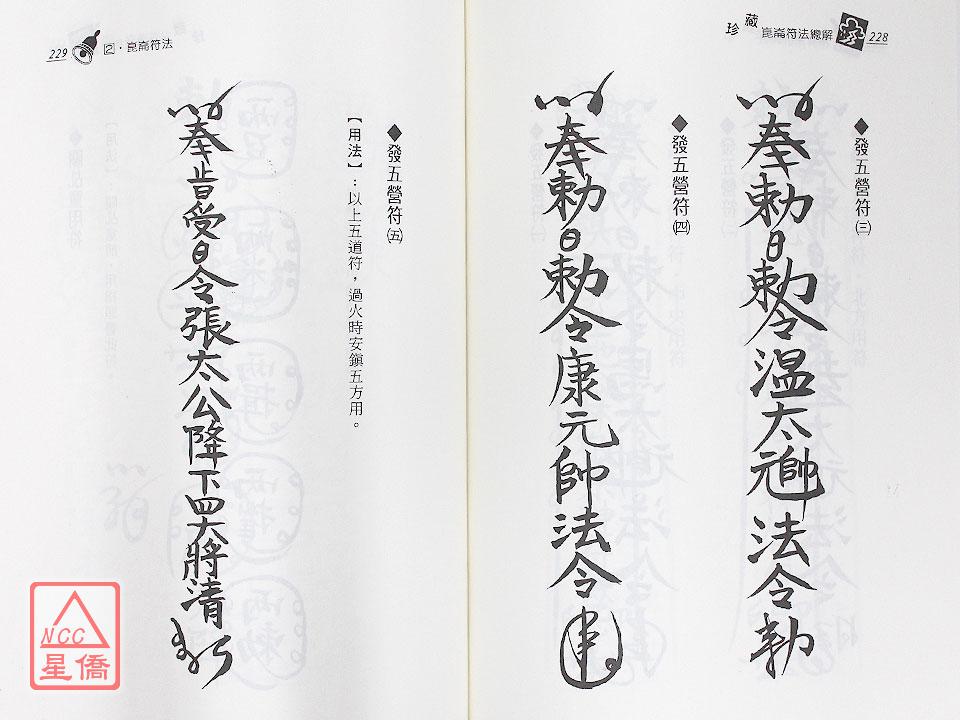 珍藏崑崙符法總解 228
◆發五營符㈢
奉勅日勅令温太元帥法令勅
◆發五營符㈣
奉勅日勅令康元帥法令
229 2・崑崙符法
◆發五營符㈤
【用法】:以上五道符，過火時安鎮五方用。
奉旨受日令張太公降下四大將清
NCC
星僑